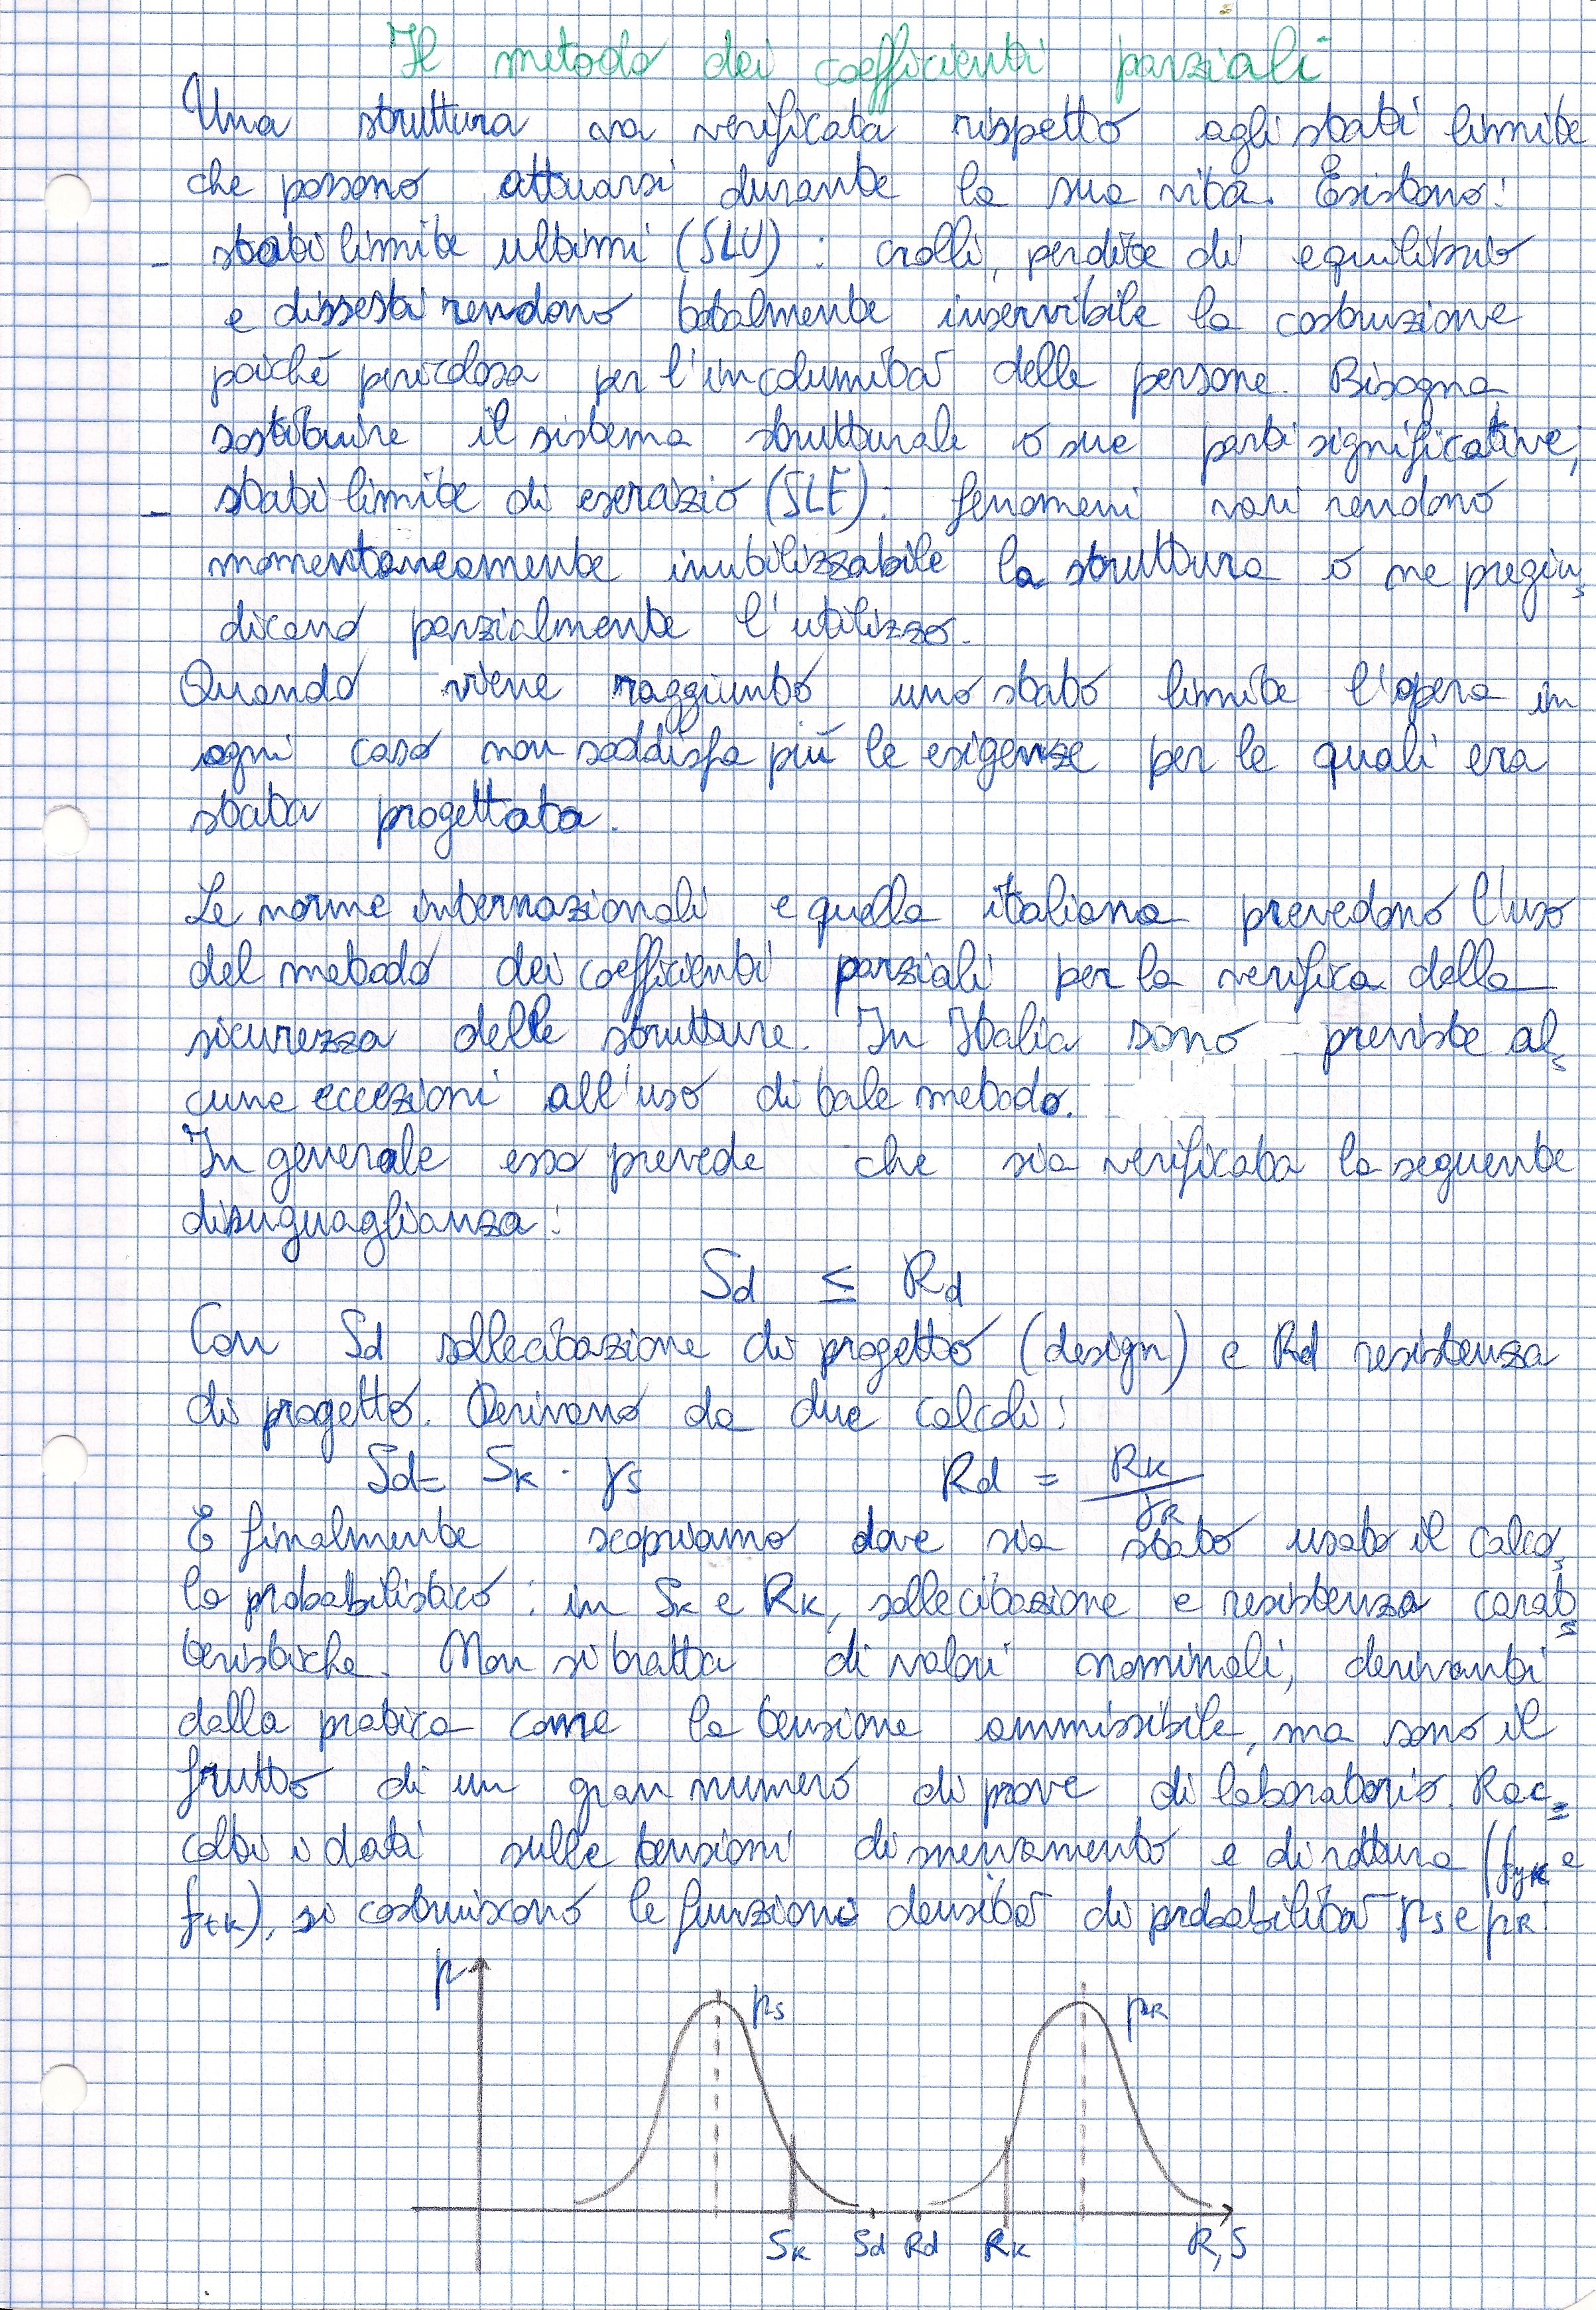 Il metodo dei coefficienti parziali
Una struttura va verificata rispetto agli stati limite
che possono attuarsi durante la sua vita. Esistono:
- stati limite ultimi (SLU): crolli, perdite di equilibrio
e dissesti rendono totalmente inservibile la costruzione
poiché pericolosa per l'incolumità delle persone. Bisogna
sostituire il sistema strutturale o sue parti significative;
- stati limite di esercizio (SLE): fenomeni vari rendono
momentaneamente inutilizzabile la struttura o ne pregiu
dicano parzialmente l'utilizzo.
Quando viene raggiunto uno stato limite l'opera in
ogni caso non soddisfa più le esigenze per le quali era
stata progettata.
Le norme internazionali e quella italiana prevedono l'uso
del metodo dei coefficienti parziali per la verifica della
sicurezza delle strutture. In Italia sono previste al
cune eccezioni all'uso di tale metodo.
In generale esso prevede che sia verificata la seguente
disuguaglianza:
Sd ≤ Rd
Con Sd sollecitazione di progetto (design) e Rd resistenza
di progetto. Derivano da due calcoli:
Sd = Sk · γS Rd = Rk / γR
E finalmente scopriamo dove sia stato usato il calco
lo probabilistico: in Sk e Rk, sollecitazione e resistenza carat
teristiche. Non si tratta di valori nominali, derivanti
dalla pratica come la tensione ammissibile, ma sono il
frutto di un gran numero di prove di laboratorio. Rac=
colti i dati sulle tensioni di snervamento e di rottura (fyk e
ftk), si costruiscono le funzioni densità di probabilità pS e pR:
p pS pR
Sk Sd Rd Rk R,S